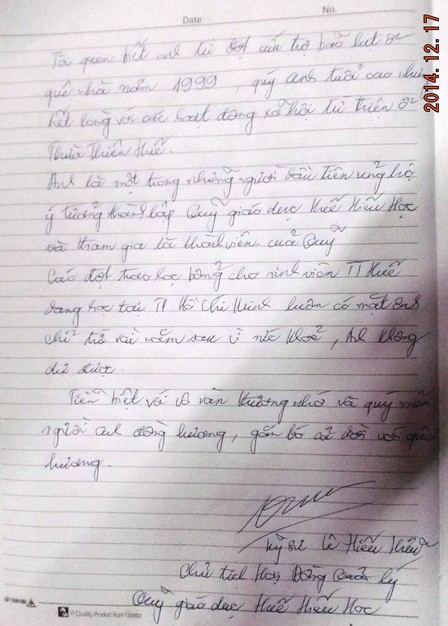 Date No.
2014.12.17
Tôi quen biết anh từ đợt cứu trợ bão lụt ở
quê nhà năm 1999, quý anh tuổi cao như
hết lòng với các hoạt động xã hội từ thiện ở
Thừa Thiên Huế.
Anh là một trong những người đầu tiên ủng hộ
ý tưởng thành lập Quỹ giáo dục Huế Hiếu Học
và tham gia là thành viên của Quỹ
Các đợt trao học bổng cho sinh viên TT Huế
đang học tại TP Hồ Chí Minh luôn có mặt anh
chỉ trừ vài năm sau vì sức khoẻ, Anh không
dự được.
Tiễn biệt với vô vàn thương nhớ và quý mến
người anh đồng hương, gắn bó cả đời với quê
hương.
Kỹ sư Lê Hiếu
Chủ tịch Hội Đồng Quản lý
Quỹ giáo dục Huế Hiếu Học
A Quality Product from